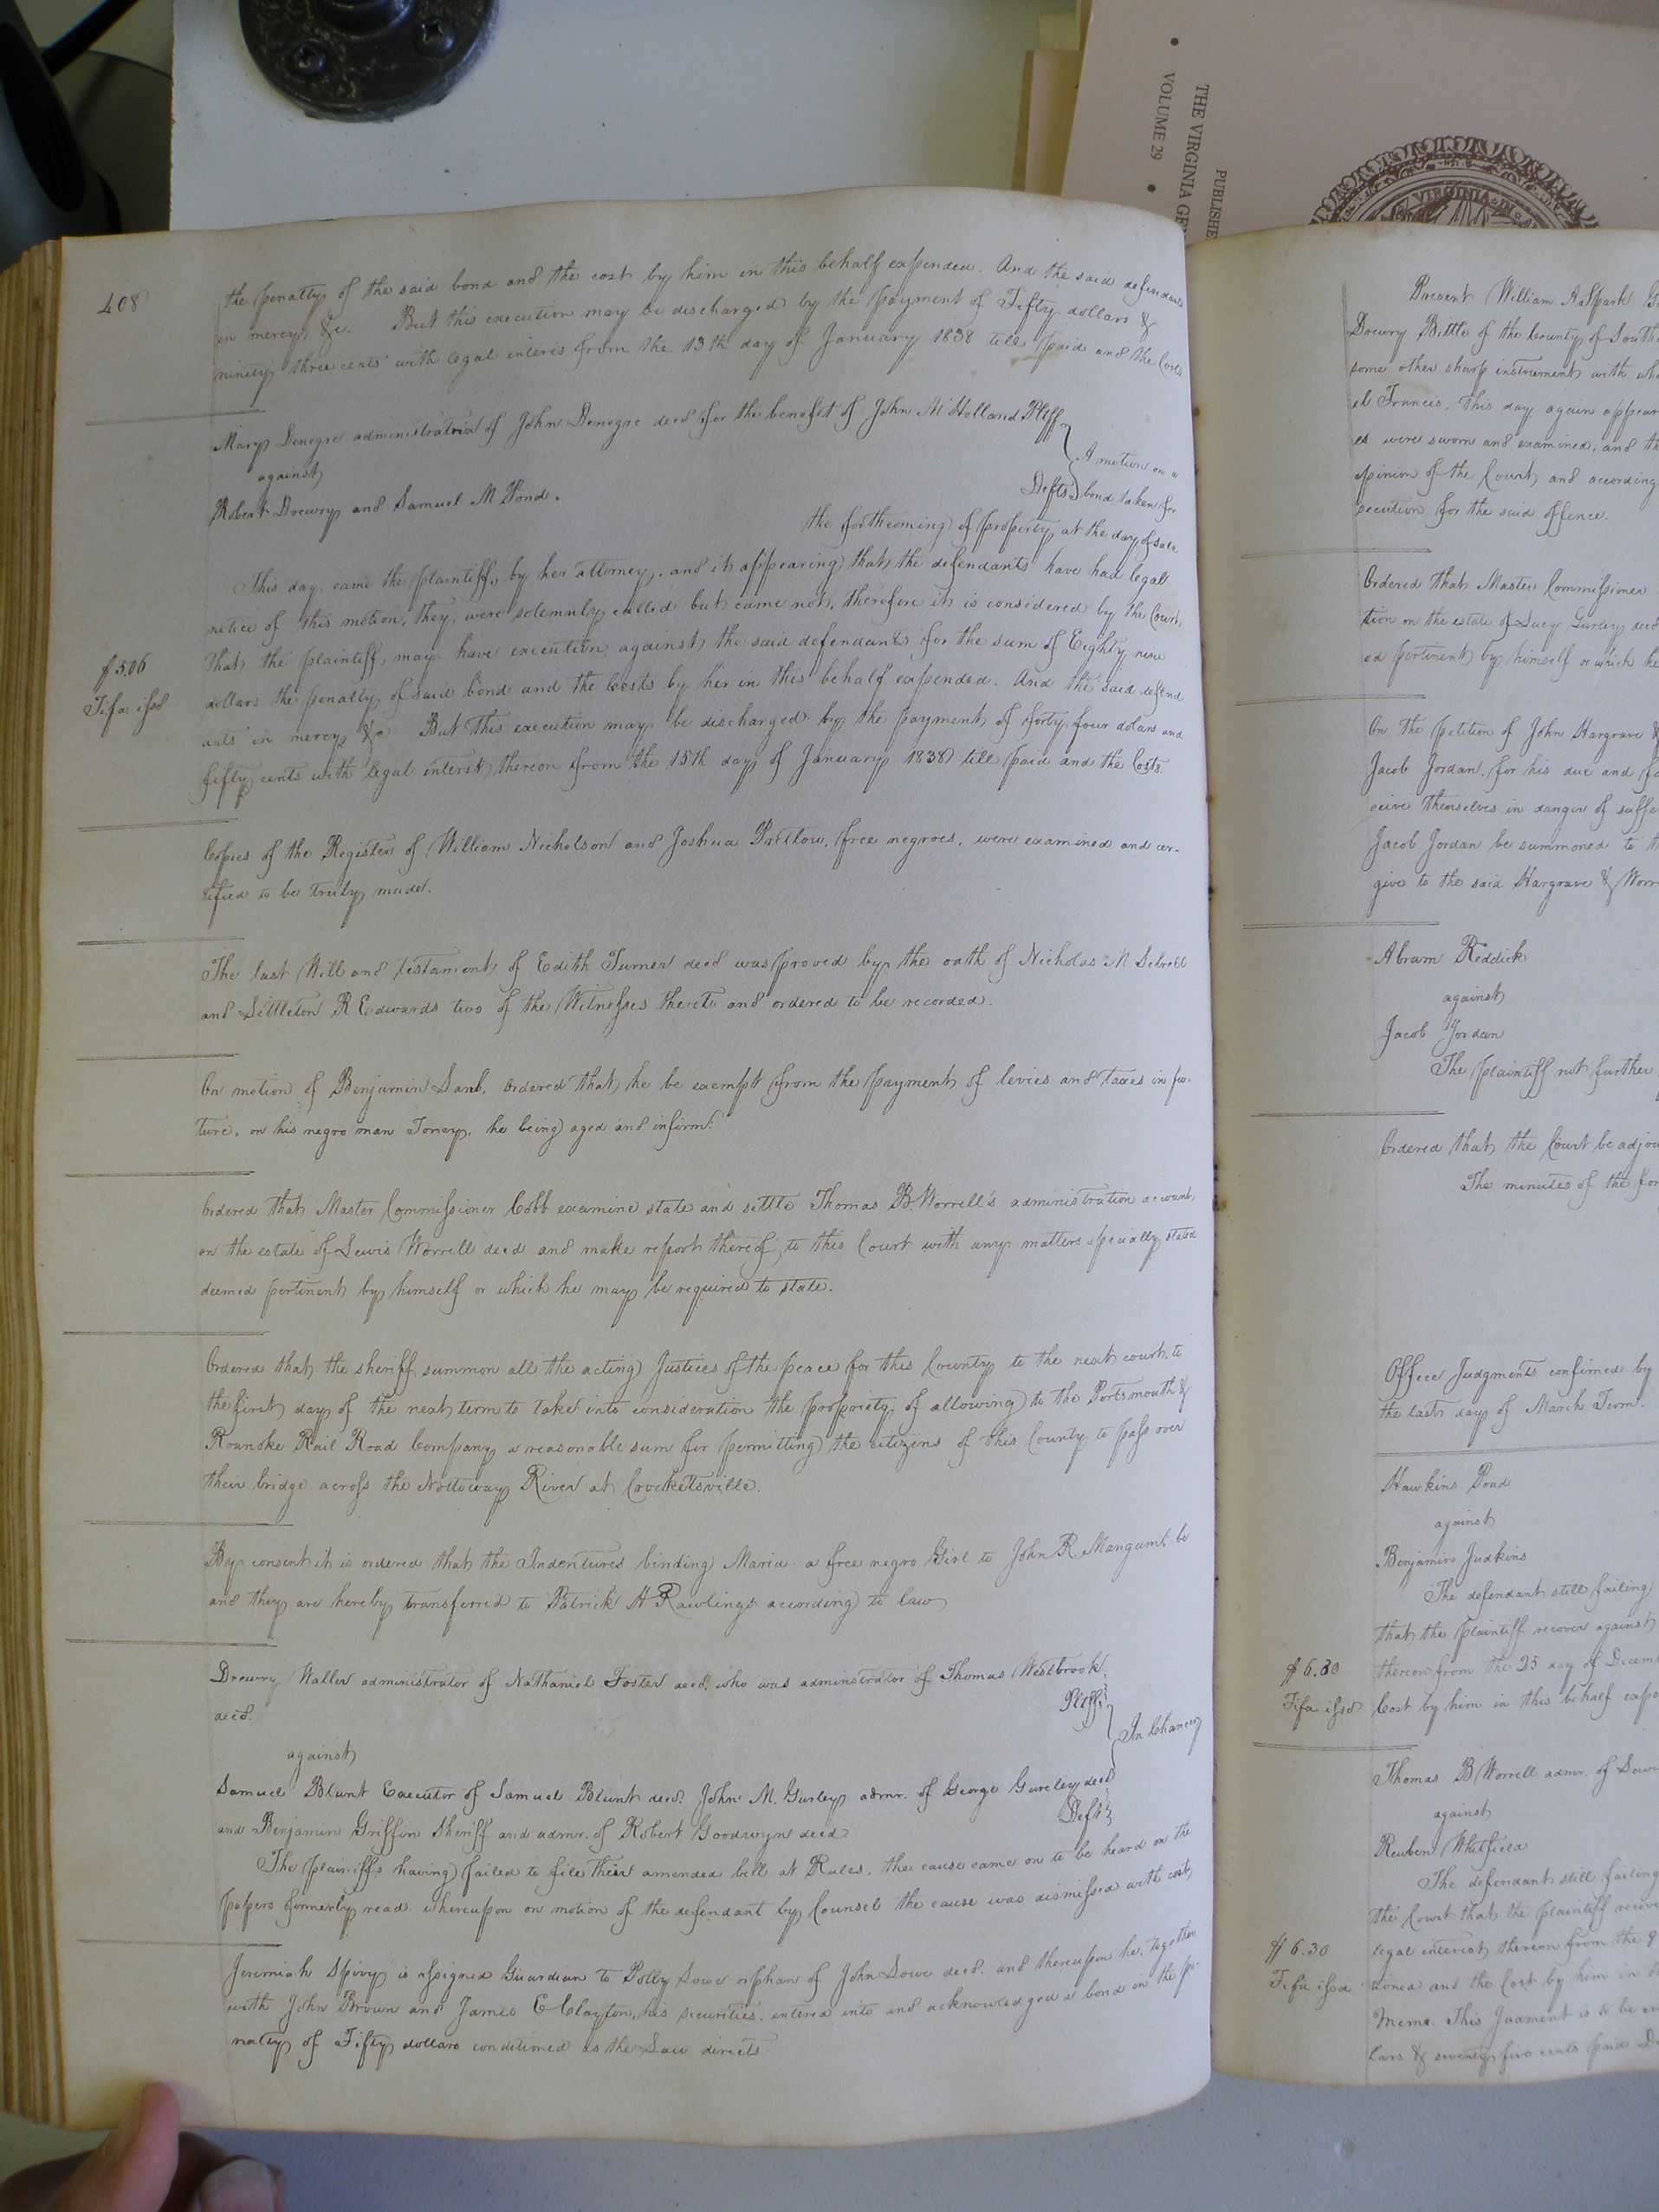 PUBLISHE
THE VIRGINIA GE
VOLUME 29
VIRGINIA IN
408
the penalty of the said bond and the cost by him in this behalf expended. And the said defendants
in mercy &c. But this execution may be discharged by the payment of Fifty dollars &
ninety three cents with legal interis from the 13th day of January 1838 till paid and the Costs
Mary Denegre administratrix of John Denegre decd for the benefit of John M Holland Pltff
against
A motion on a
Robert Drewry and Samuel M Pond.
Defts bond taken for
the forthcoming of property at the day of sale
This day came the plaintiff, by her attorney, and it appearing that the defendants have had legal
notice of this motion, they were solemnly called but came not, therefore it is considered by the Court,
that the plaintiff, may have execution against the said defendants for the sum of Eighty nine
$5.06
dollars the penalty of said bond and the Costs by her in this behalf expended. And the said defend
Fifa issd
ants in mercy &c But this execution may be discharged by the payment of forty four dolars and
fifty cents with legal interst thereon from the 15th day of January 1838 till paid and the Costs.
Copies of the Register of William Nicholson and Joshua Pretlow, free negroes, were examined and cer-
tified to be truly made.
The last Will and testament of Edith Turner decd was proved by the oath of Nicholas M Sebrell
and Littleton R Edwards two of the Witnesses thereto and ordered to be recorded.
On motion of Benjamin Danl. ordered that he be exempt from the payment of levies and taxes in fu-
ture, on his negro man Toney, he being aged and infirm.
Ordered that Master Commissioner Cobb examine state and settle Thomas B. Worrell's administration account
on the estate of Lewis Worrell decd and make report thereof to this Court with any matters specially stated
deemed pertinent by himself or which he may be required to state.
Ordered that the sheriff summon all the acting Justices of the peace for this County to the next court, to
the first day of the next term to take into consideration the propriety of allowing to the Portsmouth &
Roanoke Rail Road Company a reasonable sum for permitting the citizens of this County to pass over
their bridge across the Nottoway River at Crockettsville.
By consent it is ordered that the Indentures binding Maria a free negro Girl to John R. Mangum, be
and they are hereby transferred to Patrick H Rawlings according to law
Drewry Waller administrator of Nathaniel Foster decd. who was administrator of Thomas Westbrook,
decd.
Pltff
against
In Chancery
Samuel Blunt Executor of Samuel Blunt decd. John M. Gurley admr. of George Gureley decd
and Benjamin Griffin Sheriff and admr. of Robert Goodwyn decd
Deft
The plaintiffs having failed to file their amended bill at Rules, the cause came on to be heard on the
papers formerly read whereupon on motion of the defendant by Counsel the cause was dismissed with costs
Jeremiah Spivy is assigned Guardian to Polly Lowe orphan of John Lowe decd. and thereupon he, together
with John Brown and James E Clayton, his securities, entered into and acknowledged a bond in the pe-
nalty of Fifty dollars conditioned as the Law directs
Present William A Spark G
Drewry Bittle of the County of South
some other sharp instrument with wh
el Francis, This day again appear
es were sworn and examined, and th
opinion of the Court and according
secution for the said offence.
Ordered that Master Commissioner
tion on the estate of Lucy Gurley decd
ed pertinent by himself or which he
On the Petition of John Hargrave &
Jacob Jordan, for his due and fa
ceive themselves in danger of suffe
Jacob Jordan be summoned to th
give to the said Hargrave & Worr
Abram Reddick
against
Jacob Jordan
The plaintiff not further
Ordered that the Court be adjou
The minutes of the for
Office Judgments confirmed by
the last day of March Term.
Hawkins Pond
against
Benjamin Judkins
The defendant still failing
that the plaintiff recover against
$6.30
thereon from the 25 day of Decem
Fifa issd
Cost by him in this behalf expe
Thomas B Worrell admr. of Lewi
against
Reuben Whitfield
The defendant still failing
the Court that the plaintiff recove
$6.30
legal interest thereon from the 9
Fifa issd
tioned and the Cost by him in th
Memo. This Judment is to be en
lars & seventy five cents paid De